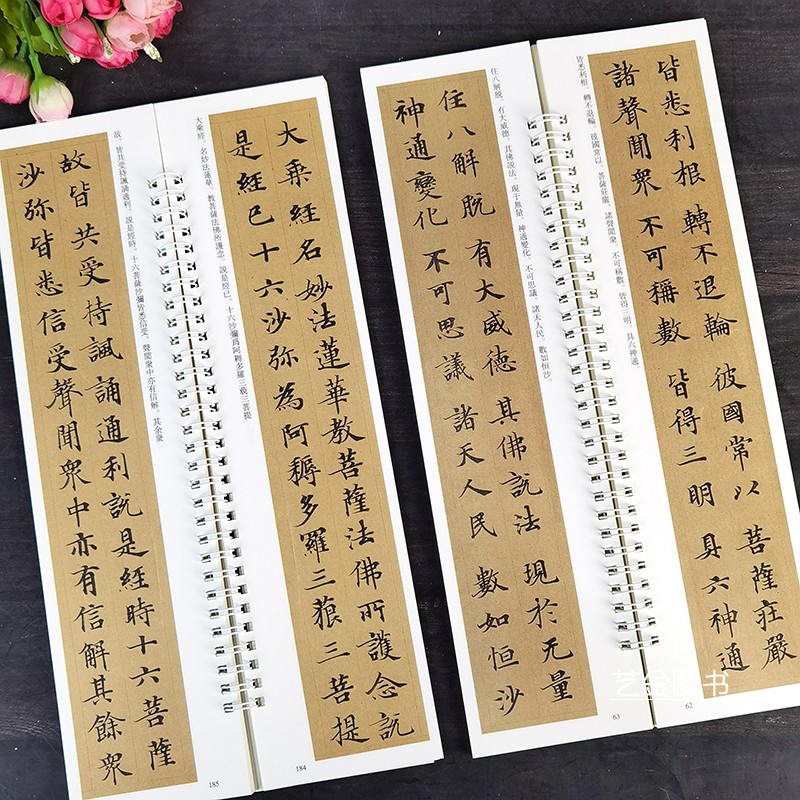 皆悉利根 轉不退輪 彼國常以 菩薩莊嚴
諸聲聞眾 不可稱數 皆得三明 具六神通
皆悉利根。轉不退輪。彼國常以。菩薩莊嚴。諸聲聞衆。不可稱數。皆得三明。具六神通。
62
住八解脱 有大威德 其佛説法 現於无量
神通變化 不可思議 諸天人民 數如恒沙
住八解脱。有大威德。其佛説法。現于無量。神通變化。不可思議。諸天人民。數如恒沙。
63
大乘經名妙法蓮華教菩薩法佛所護念説
是經已十六沙弥為阿耨多羅三藐三菩提
大乘經。名妙法蓮華。教菩薩法佛所護念。説是經已。十六沙彌爲阿耨多羅三藐三菩提
184
故皆共受持諷誦通利説是經時十六菩薩
沙弥皆悉信受聲聞眾中亦有信解其餘眾
故。皆共受持諷誦通利。説是經時。十六菩薩沙彌皆悉信受。聲聞衆中亦有信解。其余衆
185
艺金图书